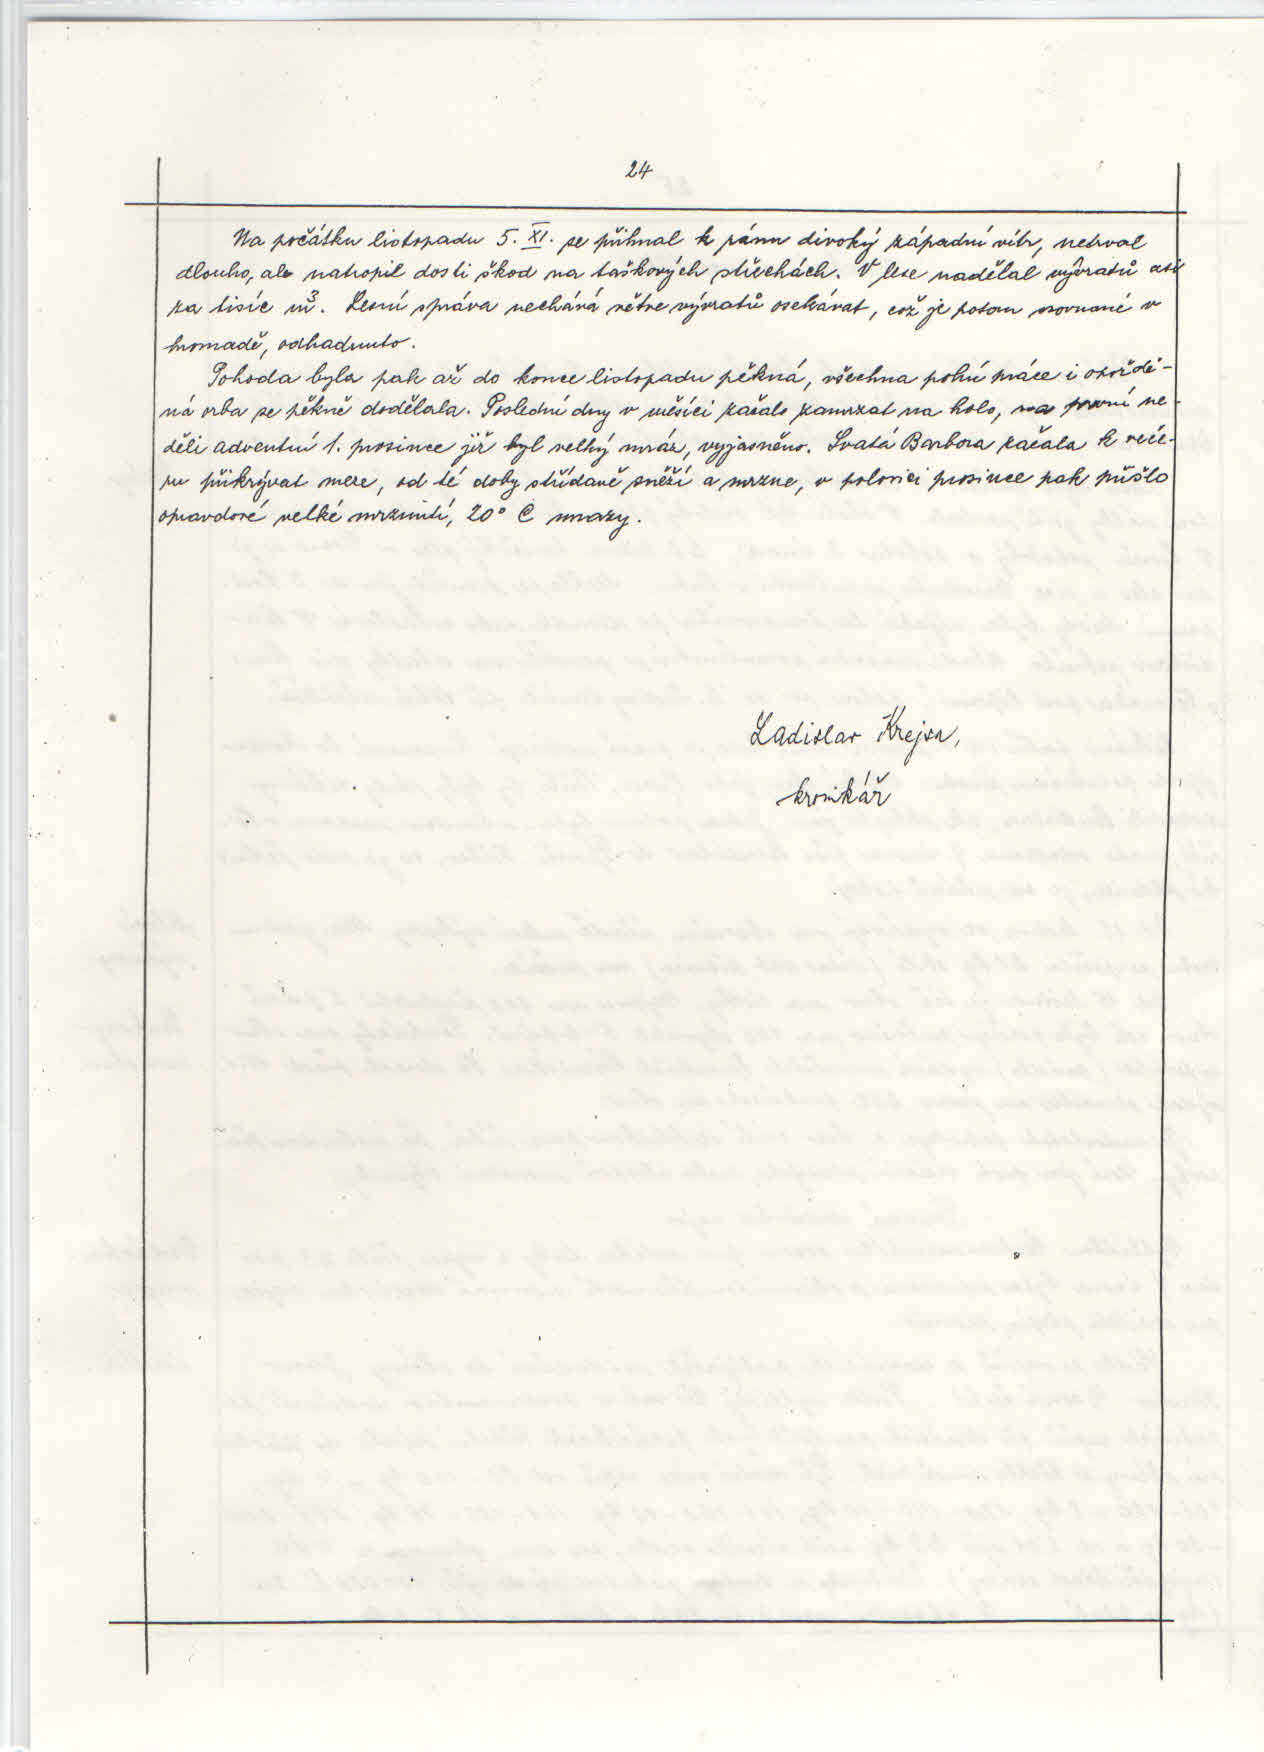 24
Na počátku listopadu 5. XI. se přihnal k ránu divoký západní vítr, netrval
dlouho, ale natropil dosti škod na taškových střechách. V lese nadělal vývratů asi
za tisíc m³. Lesní správa nechává větve vývratů osekávat, což je potom srovnané v
hromadě, odhadnuto.
Pohoda byla pak až do konce listopadu pěkná, všechna polní práce i opoždě-
ná orba se pěkně dodělala. Poslední dny v měsíci začalo zamrzat na holo, na první ne-
děli adventní 1. prosince již byl velký mráz, vyjasněno. Svatá Barbora začala k veče-
ru přikrývat meze, od té doby střídavě sněží a mrzne, v polovici prosince pak přišlo
opravdové velké mrznutí, 20° C mrazy.
Ladislav Krejsa,
kronikář